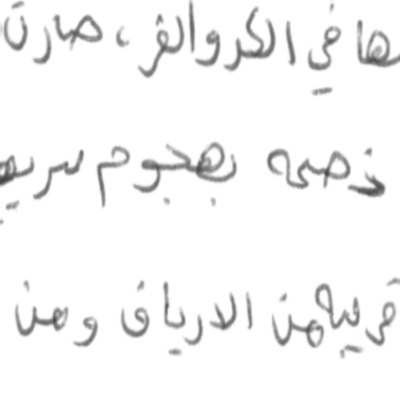 ها في الكر والفر، صارت
خصمه بهجوم سريع
قريبه من الارياف ومن